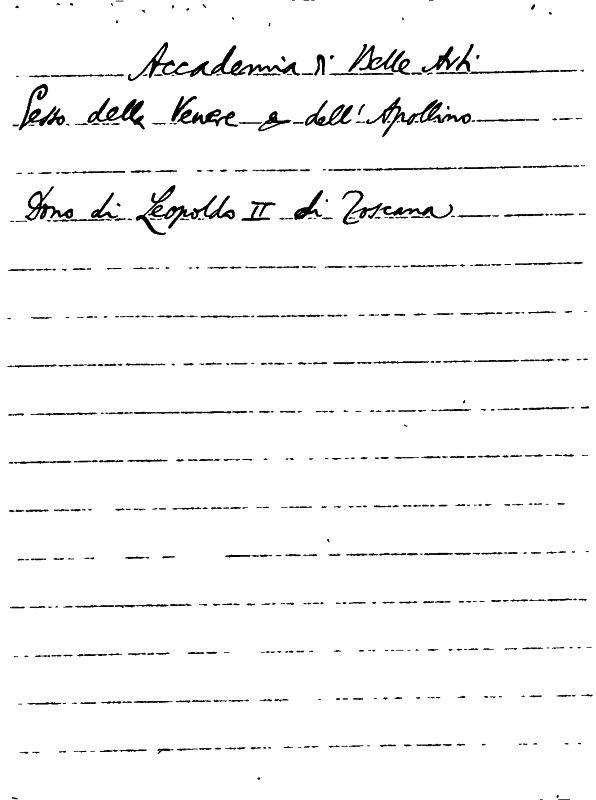 Accademia di Belle Arti
Gesso della Venere e dell'Apollino
Dono di Leopoldo II di Toscana